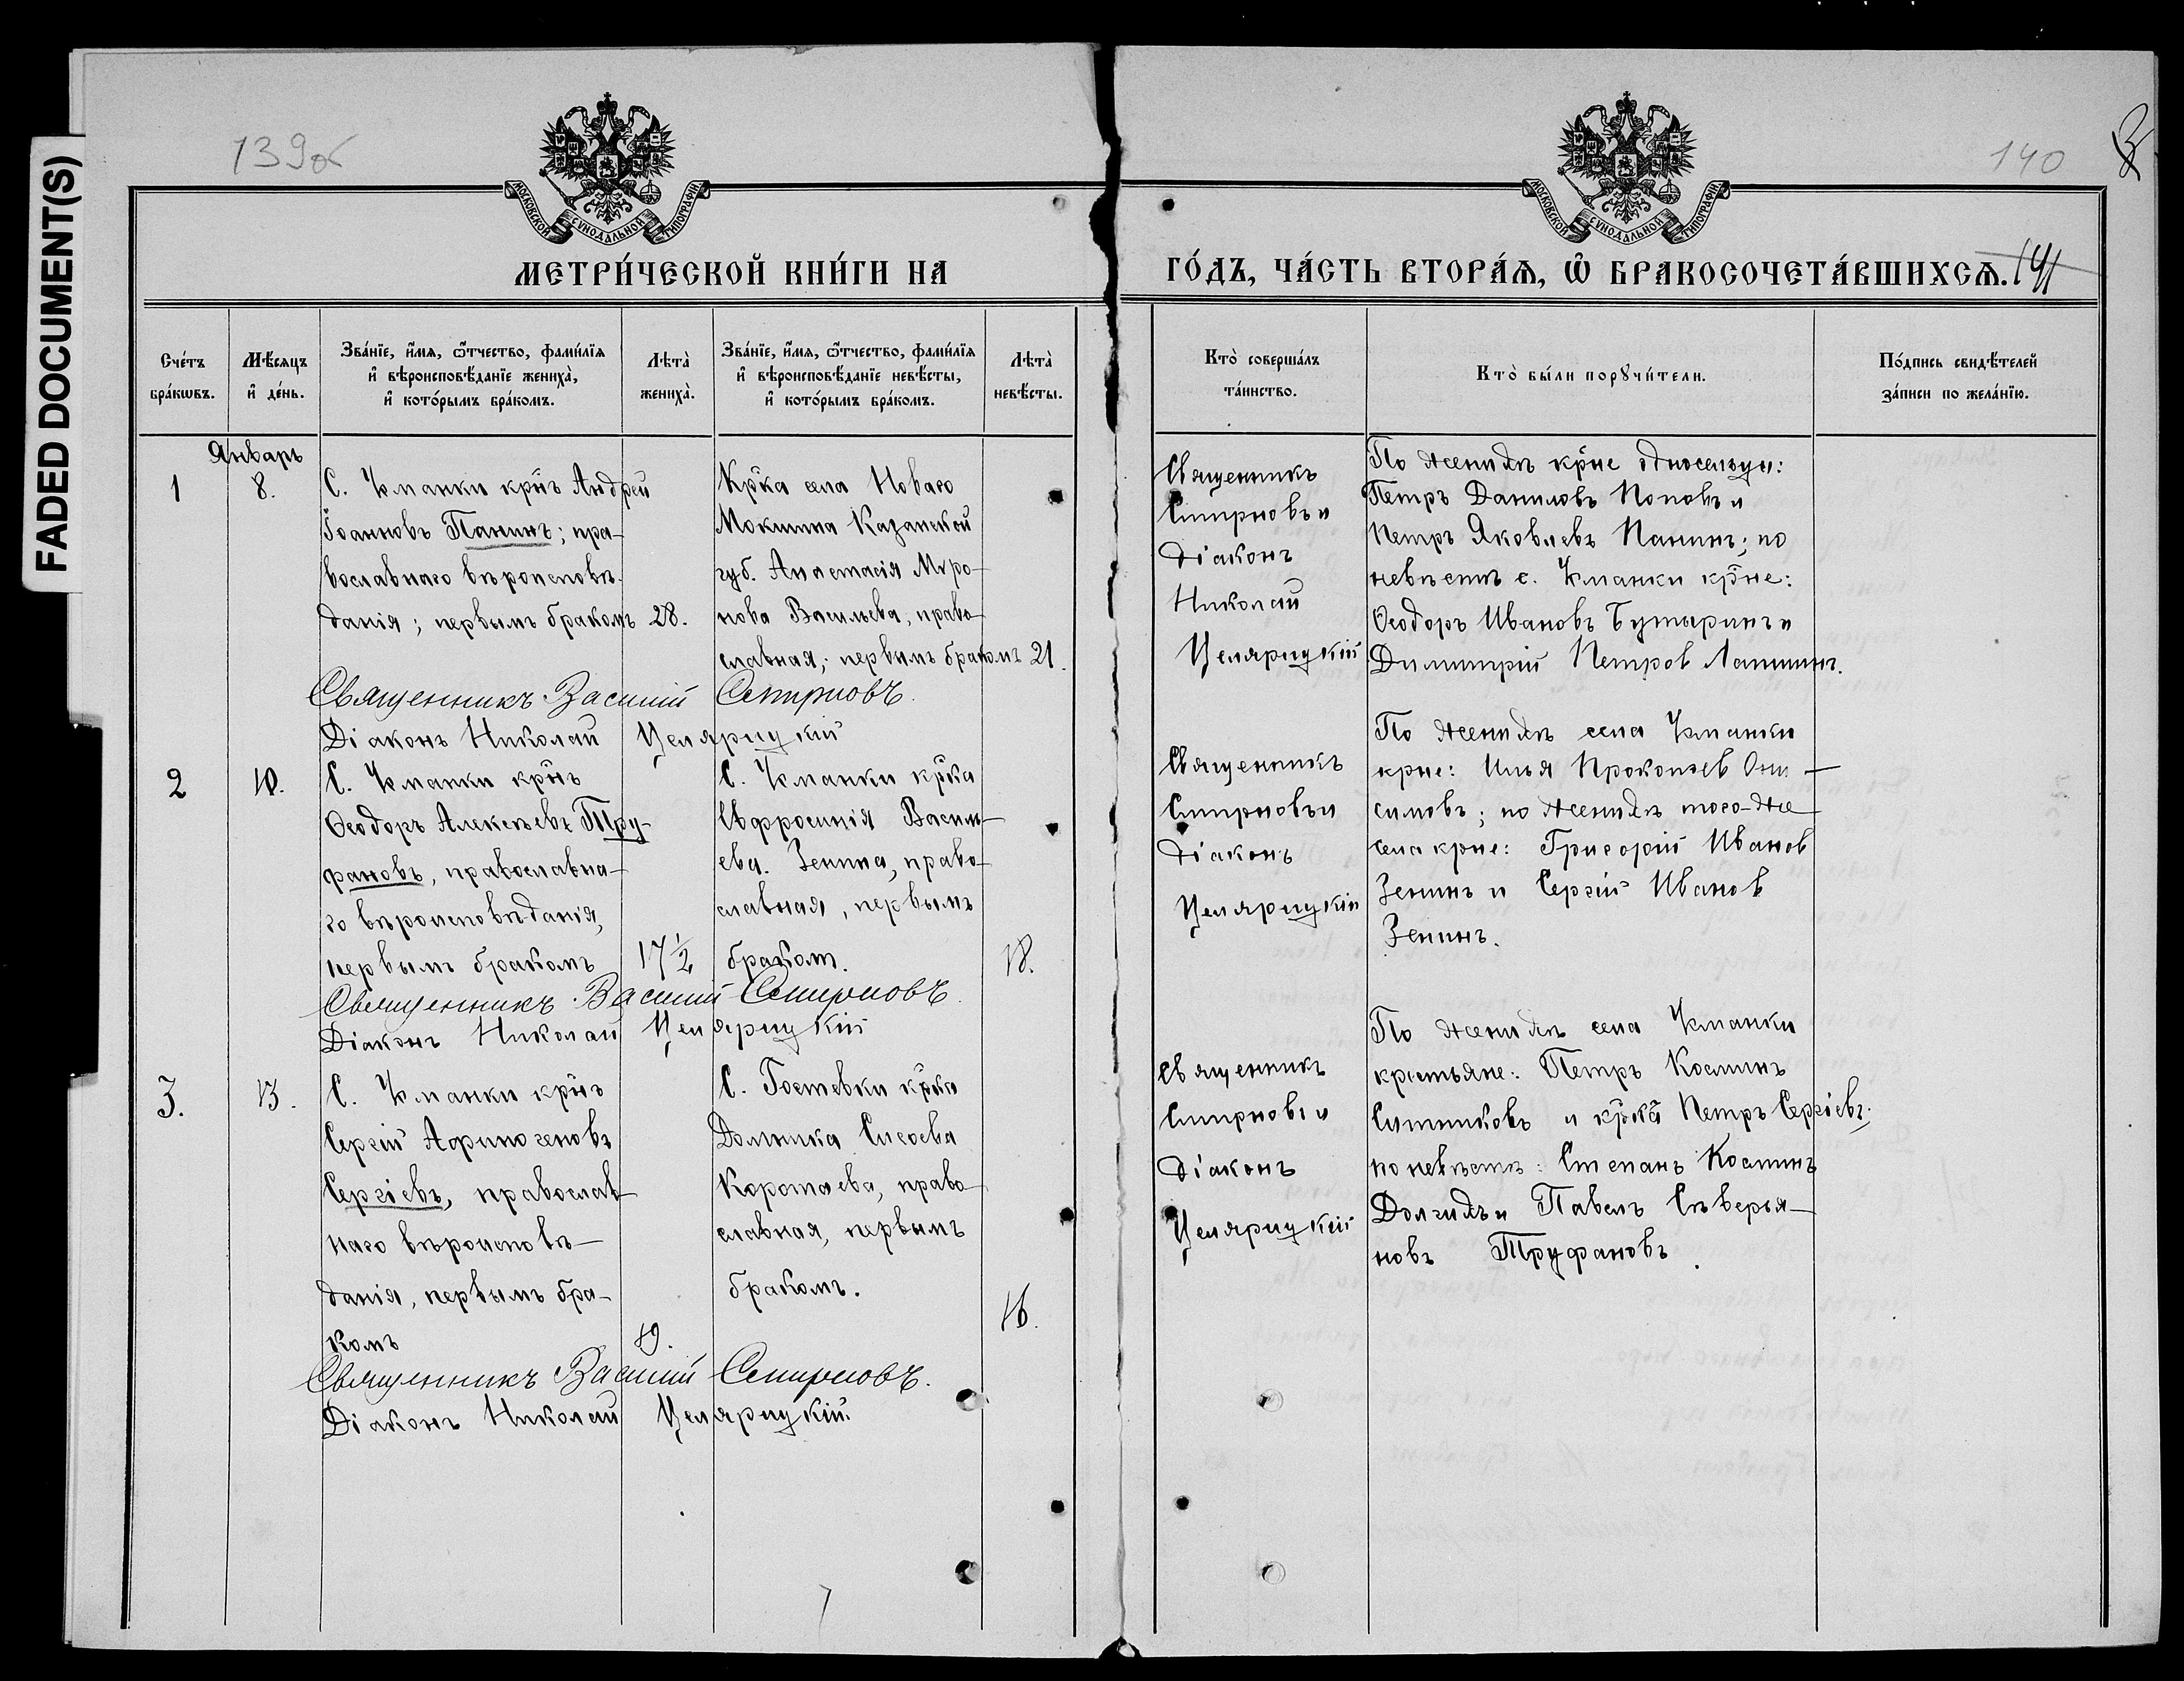 FADED DOCUMENT(S)
139об
140
МОСКОВСКОЙ СѴНОДАЛЬНОЙ ТИПОГРАФІИ
МОСКОВСКОЙ СѴНОДАЛЬНОЙ ТИПОГРАФІИ
МЕТРИ́ЧЕСКОЙ КНИ́ГИ НА
ГО́ДЪ, ЧА́СТЬ ВТОРА́Ѧ, Ѽ БРАКОСОЧЕТА́ВШИХСѦ.
141
Сче́тъ
бра́кѡвъ.
Мѣ́сяцъ
и҆ де́нь.
Зва́нїе, и҆́мя, ѻ҆́тчество, фами́лїя
и҆ вѣроисповѣ́данїе жениха̀,
и҆ кото́рымъ бра́комъ.
Лѣта̀
жениха̀.
Зва́нїе, и҆́мя, ѻ҆́тчество, фами́лїя
и҆ вѣроисповѣ́данїе невѣ́сты,
и҆ кото́рымъ бра́комъ.
Лѣта̀
невѣ́сты.
Кто̀ соверша́лъ
та́инство.
Кто̀ бы́ли порꙋчи́тели.
По́дпись свидѣ́телей
за́писи по жела́нїю.
Январь
1
8.
С. Чманки крнъ Андрей
Іоанновъ Панинъ; пра-
вославнаго вѣроисповѣ-
данія; первымъ бракомъ
28.
Крка села Новаго
Мокшина Казанской
губ. Анастасія Мѵро-
нова Васильева, право-
славная; первымъ бракомъ
21.
Священникъ
Смирновъ и
Діаконъ
Николай
Целярицкій
По женихѣ крне односельцы:
Петръ Даниловъ Поповъ и
Петръ Яковлевъ Панинъ; по
невѣстѣ с. Чманки крне:
Ѳеодоръ Ивановъ Бутыринъ и
Димитрій Петров Лапшинъ.
Священникъ Василій Смирновъ.
Діаконъ Николай Целярицкій
2
10.
С. Чманки крнъ
Ѳеодоръ Алексѣевъ Тру-
фановъ, православна-
го вѣроисповѣданія,
первымъ бракомъ
17 1/2
С. Чманки крка
Евфросинія Василь-
ева Зенина, право-
славная, первымъ
браком.
18.
Священникъ
Смирновъ и
Діаконъ
Целярицкій
По женихѣ села Чманки
крне: Илья Прокопьев Они-
симовъ; по женихѣ того-же
села крне: Григорій Иванов
Зенинъ и Сергій Иванов
Зенинъ.
Священникъ Василій Смирновъ.
Діаконъ Николай Целярицкій
3.
13.
С. Чманки крнъ
Сергій Афиногеновъ
Сергіевъ, православ-
наго вѣроисповѣ-
данія, первымъ бра-
комъ
19.
С. Гостевки крка
Домника Сисоева
Коротаева, право-
славная, первымъ
бракомъ.
16.
Священникъ
Смирновъ и
Діаконъ
Целярицкій
По женихѣ села Чманки
крстьяне: Петръ Косминъ
Ситниковъ и Петръ Сергіевъ;
по невѣстѣ: Степанъ Косминъ
Долгихъ и Павелъ Сѣверья-
новъ Труфановъ.
Священникъ Василій Смирновъ.
Діаконъ Николай Целярицкій.